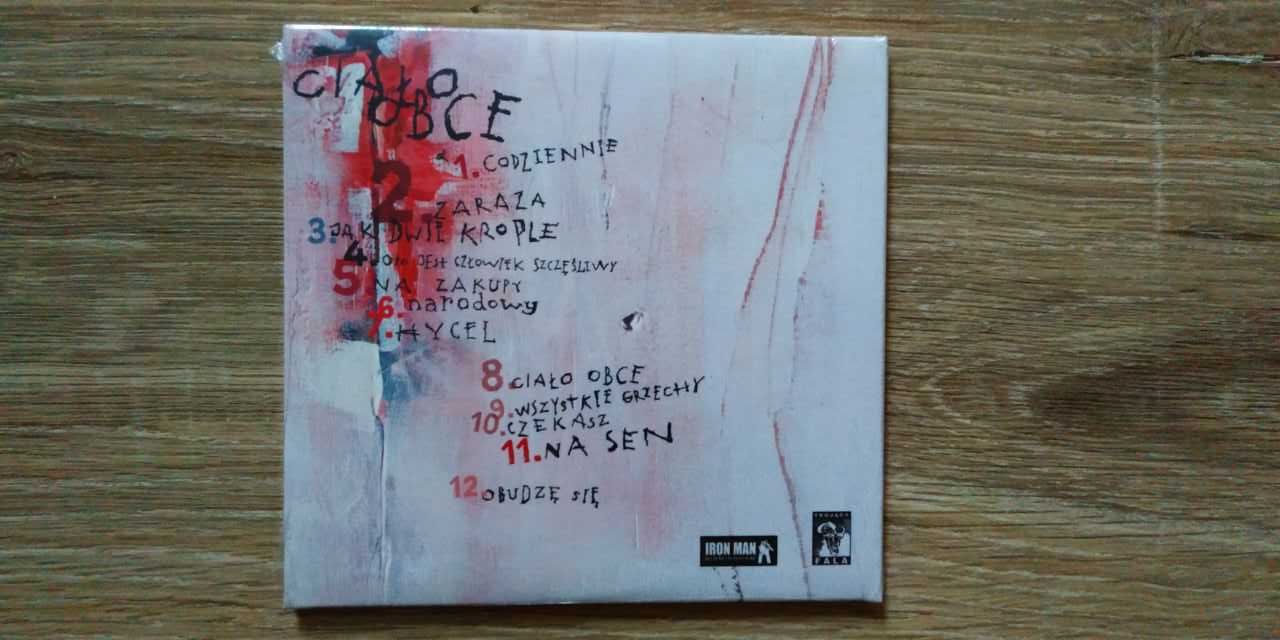 CIAŁO
OBCE
1. CODZIENNIE
2 ZARAZA
3. JAK DWIE KROPLE
4 JEST CZŁOWIEK SZCZĘŚLIWY
5 NA ZAKUPY
6. narodowy
7. HYCEL
8. CIAŁO OBCE
9. WSZYSTKIE GRZECHY
10. CZEKASZ
11. NA SEN
12 OBUDZĘ SIĘ
IRON MAN
FALA